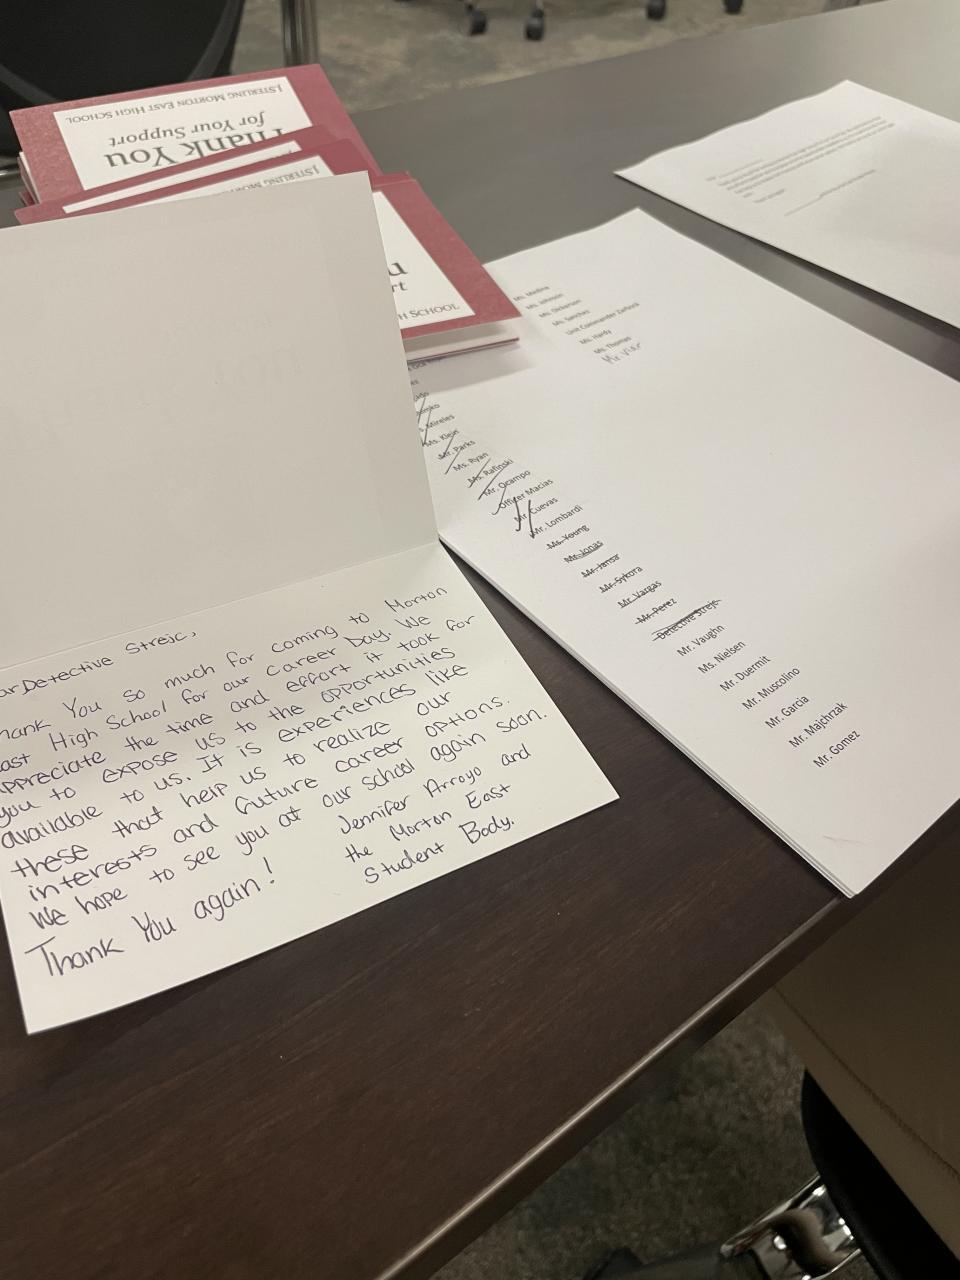 J.STERLING MORTON EAST HIGH SCHOOL
Thank You
for Your Support
J.STERLING
rt
H SCHOOL
ar Detective Strejc,
hank You so much for coming to Morton
ast High School for our Career Day. We
appreciate the time and effort it took for
you to expose us to the opportunities
available to us. It is experiences like
these that help us to realize our
interests and future career options.
We hope to see you at our school again soon.
Thank You again!
Jennifer Arroyo and
the Morton East
Student Body.
Ms. Medina
Ms. Johnson
Ms. Dickerson
Ms. Sanchez
Unit Commander Zarbock
Ms. Hardy
Ms. Thomas
Mireles
Ms. Klein
Mr. Parks
Ms. Ryan
Ms. Rafinski
Mr. Ocampo
Officer Macias
Mr. Cuevas
Mr. Lombardi
Ms. Young
Mr. Jonas
Mr. Jansa
Mr. Sykora
Mr. Vargas
Mr. Perez
Detective Strejc
Mr. Vaughn
Ms. Nielsen
Mr. Duermit
Mr. Muscolino
Mr. Garcia
Mr. Majchrzak
Mr. Gomez